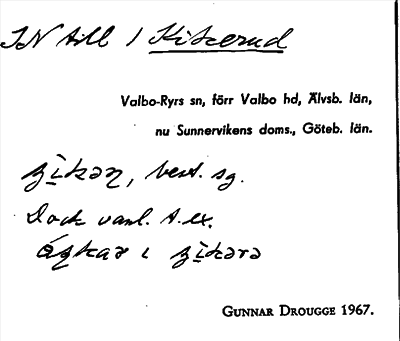 IN till 1 Kikerud
Valbo-Ryrs sn, förr Valbo hd, Älvsb. län,
nu Sunnervikens doms., Göteb. län.
best. sg.
Dock vanl. t.ex.
i
GUNNAR DROUGGE 1967.